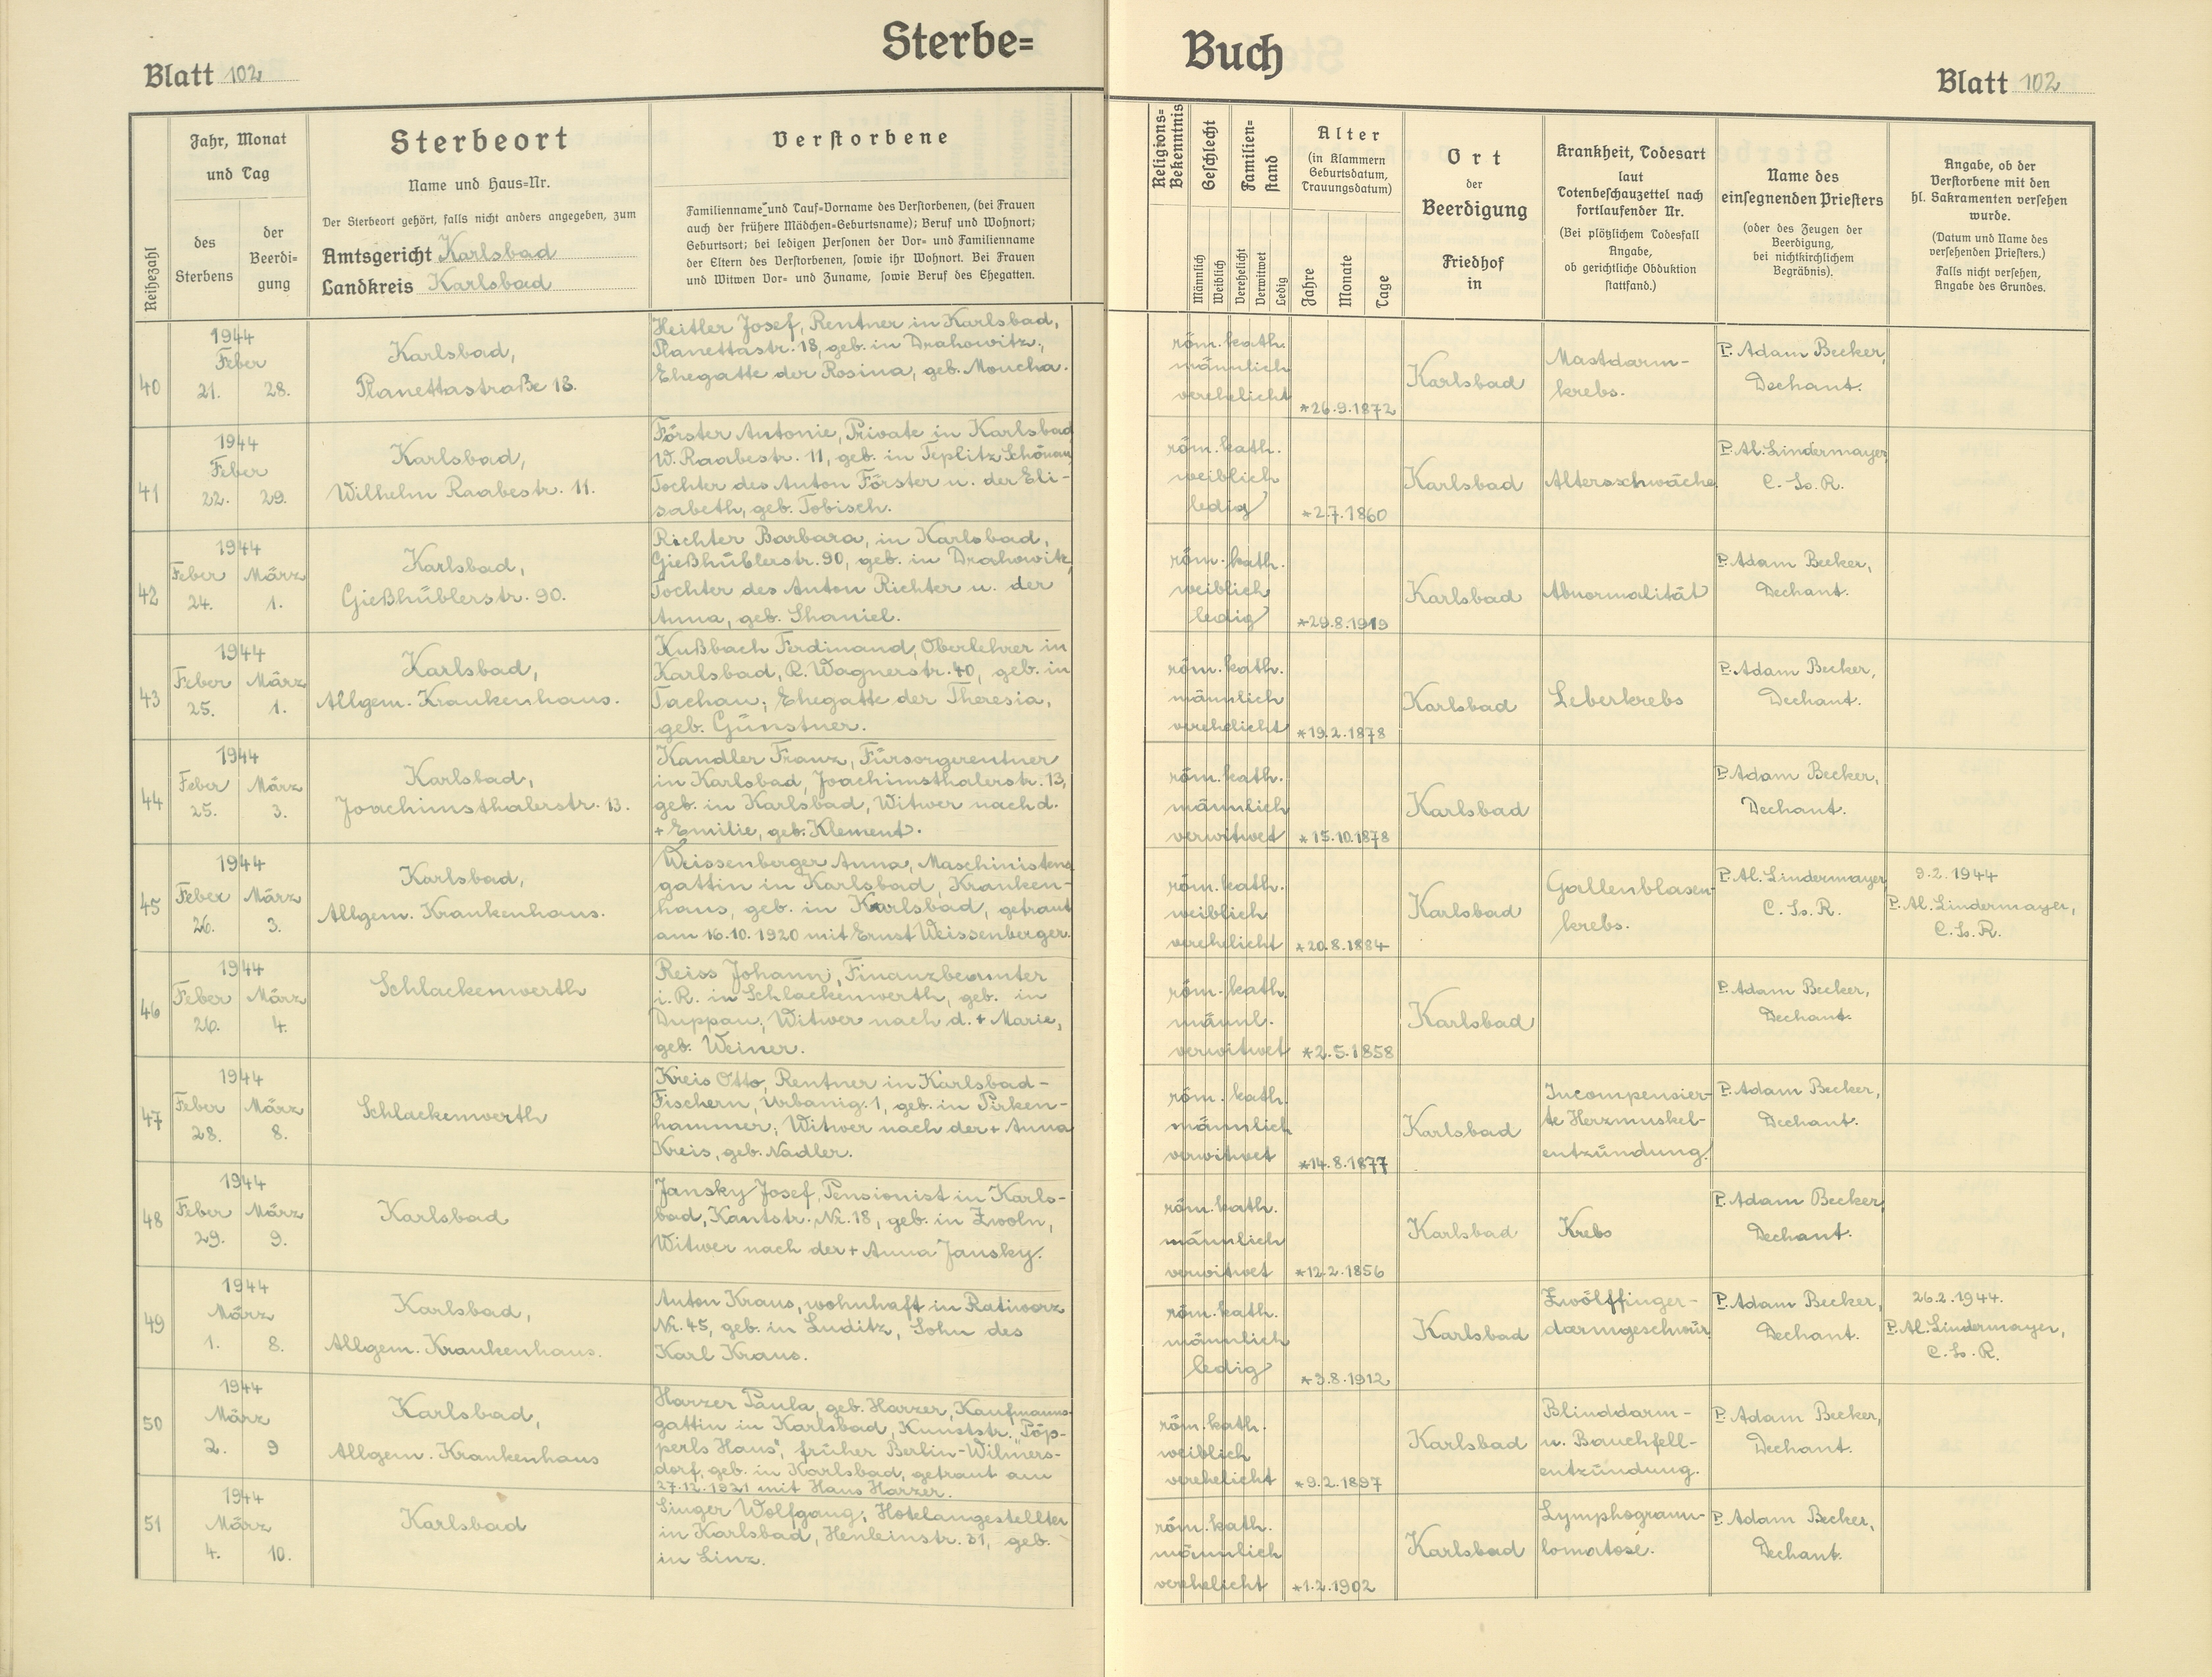 Sterbe=
Buch
Blatt 102
Blatt 102
Reihezahl
Jahr, Monat
und Tag
des
Sterbens
der
Beerdi=
gung
Sterbeort
Name und Haus=Nr.
Der Sterbeort gehört, falls nicht anders angegeben, zum
Amtsgericht Karlsbad
Landkreis Karlsbad
Verstorbene
Familienname und Tauf=Vorname des Verstorbenen, (bei Frauen
auch der frühere Mädchen=Geburtsname); Beruf und Wohnort;
Geburtsort; bei ledigen Personen der Vor= und Familienname
der Eltern des Verstorbenen, sowie ihr Wohnort. Bei Frauen
und Witwen Vor= und Zuname, sowie Beruf des Ehegatten.
Religions=
Bekenntnis
Geschlecht
Männlich
Weiblich
Familien=
stand
Verehelicht
Verwitwet
Ledig
Alter
(in Klammern
Geburtsdatum,
Trauungsdatum)
Jahre
Monate
Tage
Ort
der
Beerdigung
Friedhof
in
Krankheit, Todesart
laut
Totenbeschauzettel nach
fortlaufender Nr.
(Bei plötzlichem Todesfall
Angabe,
ob gerichtliche Obduktion
stattfand.)
Name des
einsegnenden Priesters
(oder des Zeugen der
Beerdigung,
bei nichtkirchlichem
Begräbnis).
Angabe, ob der
Verstorbene mit den
hl. Sakramenten versehen
wurde.
(Datum und Name des
versehenden Priesters.)
Falls nicht versehen,
Angabe des Grundes.
40
1944
Feber
21. 28.
Karlsbad,
Planettastraße 18.
Heitler Josef, Rentner in Karlsbad,
Planettastr. 18, geb. in Drahowitz,
Ehegatte der Rosina, geb. Moucha.
röm. kath.
männlich
verehelicht
*26.9.1872
Karlsbad
Mastdarm-
krebs.
P. Adam Becker,
Dechant.
41
1944
Feber
22. 29.
Karlsbad,
Wilhelm Raabestr. 11.
Förster Antonie, Private in Karlsbad
W. Raabestr. 11, geb. in Teplitz Schönau,
Tochter des Anton Förster u. der Eli-
sabeth, geb. Tobisch.
röm. kath.
weiblich
ledig
*2.7.1860
Karlsbad
Altersschwäche
P. Al. Lindermayer
C. Ss. R.
42
1944
Feber März
24. 1.
Karlsbad,
Gießhüblerstr. 90.
Richter Barbara, in Karlsbad,
Gießhüblerstr. 90, geb. in Drahowitz,
Tochter des Anton Richter u. der
Anna, geb. Shaniel.
röm. kath.
weiblich
ledig
*29.8.1919
Karlsbad
Abnormalität
P. Adam Becker,
Dechant.
43
1944
Feber März
25. 1.
Karlsbad,
Allgem. Krankenhaus.
Kußbach Ferdinand, Oberlehrer in
Karlsbad, R. Wagnerstr. 40, geb. in
Tachau; Ehegatte der Theresia,
geb. Günstner.
röm. kath.
männlich
verehelicht
*19.2.1878
Karlsbad
Leberkrebs
P. Adam Becker,
Dechant.
44
1944
Feber März
25. 3.
Karlsbad,
Joachimsthalerstr. 13.
Kandler Franz, Fürsorgerentner
in Karlsbad, Joachimsthalerstr. 13,
geb. in Karlsbad, Witwer nach d.
+ Emilie, geb. Klement.
röm. kath.
männlich
verwitwet
*15.10.1878
Karlsbad
P. Adam Becker,
Dechant.
45
1944
Feber März
26. 3.
Karlsbad,
Allgem. Krankenhaus.
Weissenberger Anna, Maschinistens
gattin in Karlsbad, Kranken-
haus, geb. in Karlsbad, getraut
am 16.10.1920 mit Ernst Weissenberger.
röm. kath.
weiblich
verehelicht
*20.8.1884
Karlsbad
Gallenblasen-
krebs.
P. Al. Lindermayer
C. Ss. R.
9.2.1944
P. Al. Lindermayer,
C. Ss. R.
46
1944
Feber März
26. 4.
Schlackenwerth
Reiss Johann, Finanzbeamter
i. R. in Schlackenwerth, geb. in
Duppau; Witwer nach d. + Marie,
geb. Weiner.
röm. kath.
männl.
verwitwet
*2.5.1858
Karlsbad
P. Adam Becker,
Dechant.
47
1944
Feber März
28. 8.
Schlackenwerth
Kreis Otto, Rentner in Karlsbad-
Fischern, Urbanig. 1, geb. in Pirken-
hammer; Witwer nach der + Anna
Kreis, geb. Nadler.
röm. kath.
männlich
verwitwet
*14.8.1877
Karlsbad
Incompensier-
te Herzmuskel-
entzündung.
P. Adam Becker,
Dechant.
48
1944
Feber März
29. 9.
Karlsbad
Jansky Josef, Pensionist in Karls-
bad, Kantstr. Nr. 18, geb. in Zwoln,
Witwer nach der + Anna Jansky.
röm. kath.
männlich
verwitwet
*12.2.1856
Karlsbad
Krebs
P. Adam Becker,
Dechant.
49
1944
März
1. 8.
Karlsbad,
Allgem. Krankenhaus.
Anton Kraus, wohnhaft in Ratiworz
Nr. 45, geb. in Luditz, Sohn des
Karl Kraus.
röm. kath.
männlich
ledig
*3.8.1912
Karlsbad
Zwölffinger-
darmgeschwür
P. Adam Becker,
Dechant.
26.2.1944.
P. Al. Lindermayer,
C. Ss. R.
50
1944
März
2. 9
Karlsbad,
Allgem. Krankenhaus
Harzer Paula, geb. Harzer, Kaufmanns-
gattin in Karlsbad, Kunststr. "Pöp-
perls Haus", früher Berlin-Wilmers-
dorf, geb. in Karlsbad, getraut am
27.12.1921 mit Hans Harzer.
röm. kath.
weiblich
verehelicht
*9.2.1897
Karlsbad
Blinddarm-
u. Bauchfell-
entzündung.
P. Adam Becker,
Dechant.
51
1944
März
4. 10.
Karlsbad
Singer Wolfgang; Hotelangestellter
in Karlsbad, Henleinstr. 31, geb.
in Linz.
röm. kath.
männlich
verehelicht
*1.2.1902
Karlsbad
Lymphogranu-
lomatose.
P. Adam Becker,
Dechant.